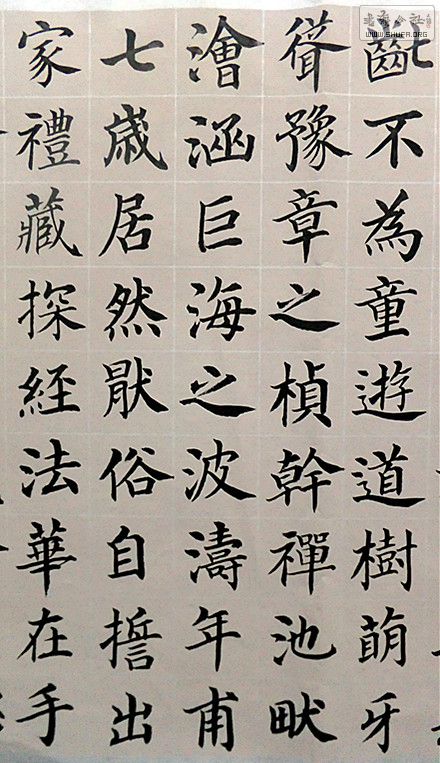 齔不為童遊道樹萌牙
聳豫章之楨幹禪池畎
澮涵巨海之波濤年甫
七歲居然厭俗自誓出
家禮藏探經法華在手
WWW.SHUFA.ORG